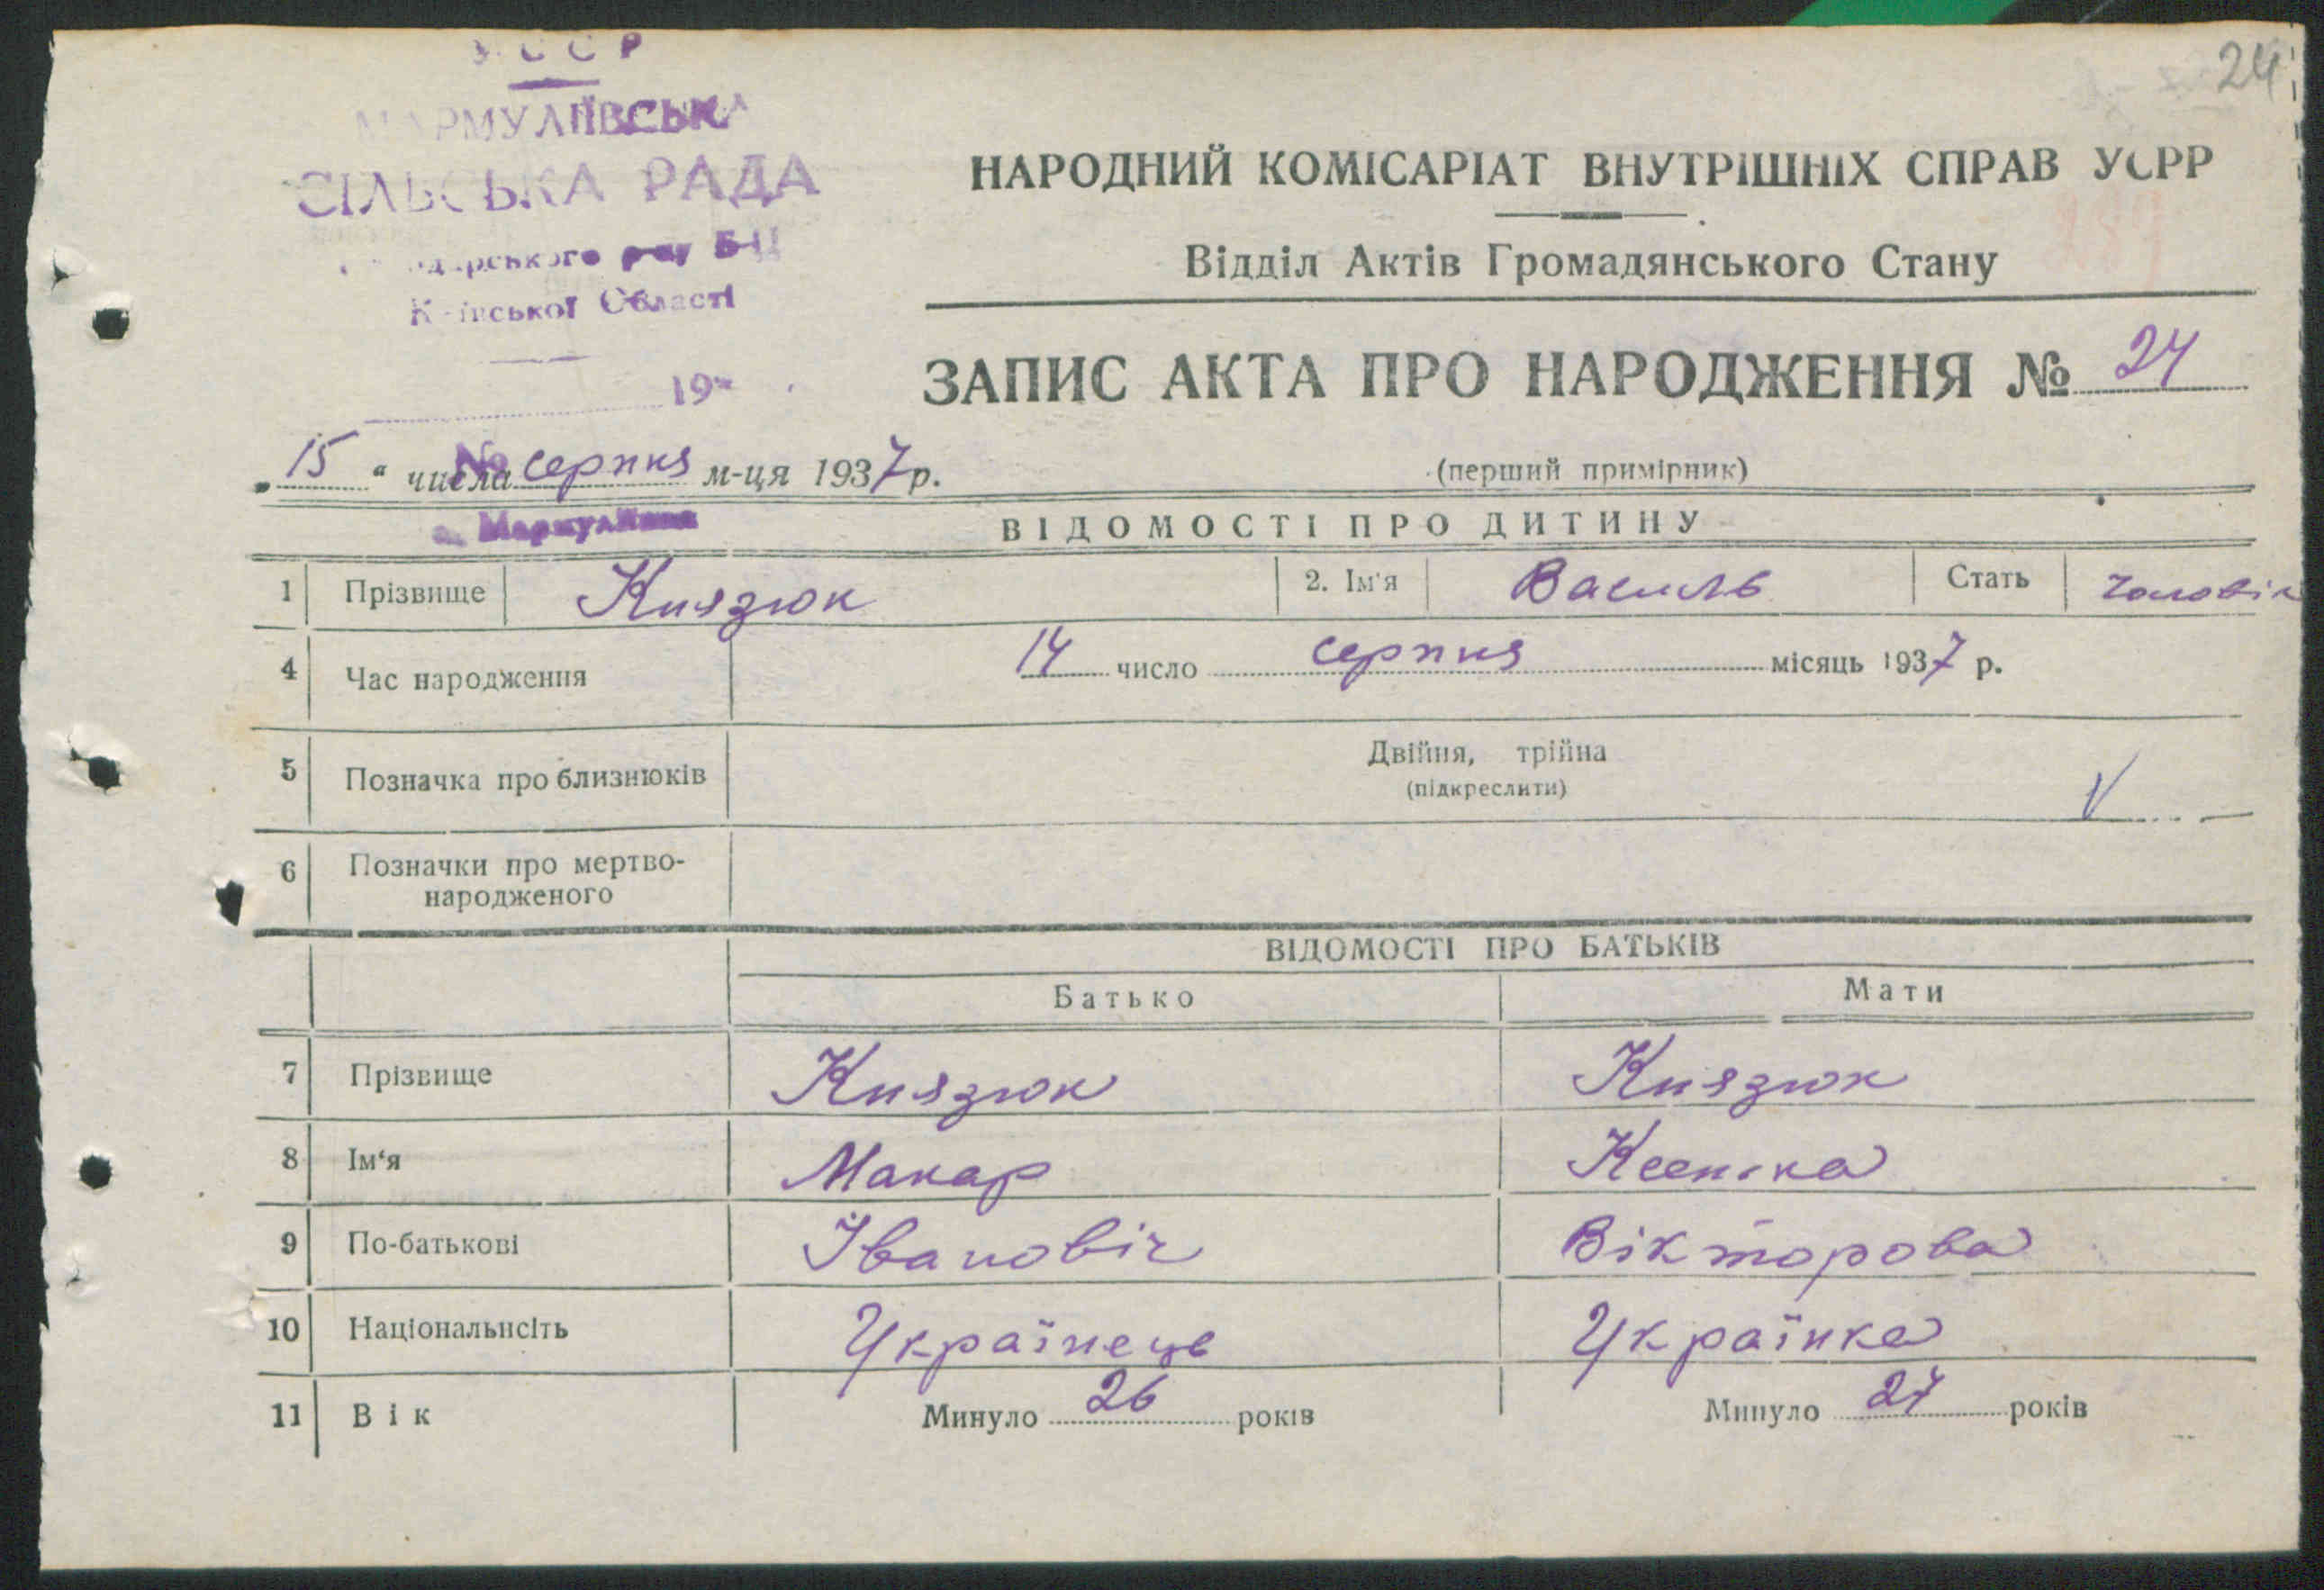 24
УССР
МАРМУЛІЇВСЬКА
СІЛЬСЬКА РАДА
р-ну БЦ
Київської Області
19
НАРОДНИЙ КОМІСАРІАТ ВНУТРІШНІХ СПРАВ УСРР
Відділ Актів Громадянського Стану
ЗАПИС АКТА ПРО НАРОДЖЕННЯ № 24
„15“ числа серпня м-ця 1937 р.
№
(перший примірник)
с. Мармуліївка
ВІДОМОСТІ ПРО ДИТИНУ
1 Прізвище Князюк 2. Ім'я Василь Стать Чоловік
4 Час народження 14 число серпня місяць 1937 р.
5 Позначка про близнюків Двійня, трійна
(підкреслити) V
6 Позначки про мертво-
народженого
ВІДОМОСТІ ПРО БАТЬКІВ
Батько Мати
7 Прізвище Князюк Князюк
8 Ім‘я Макар
9 По-батькові Івановіч Вікторова
10 Національнсіть Українець Українка
11 Вік Минуло 26 років Минуло 27 років